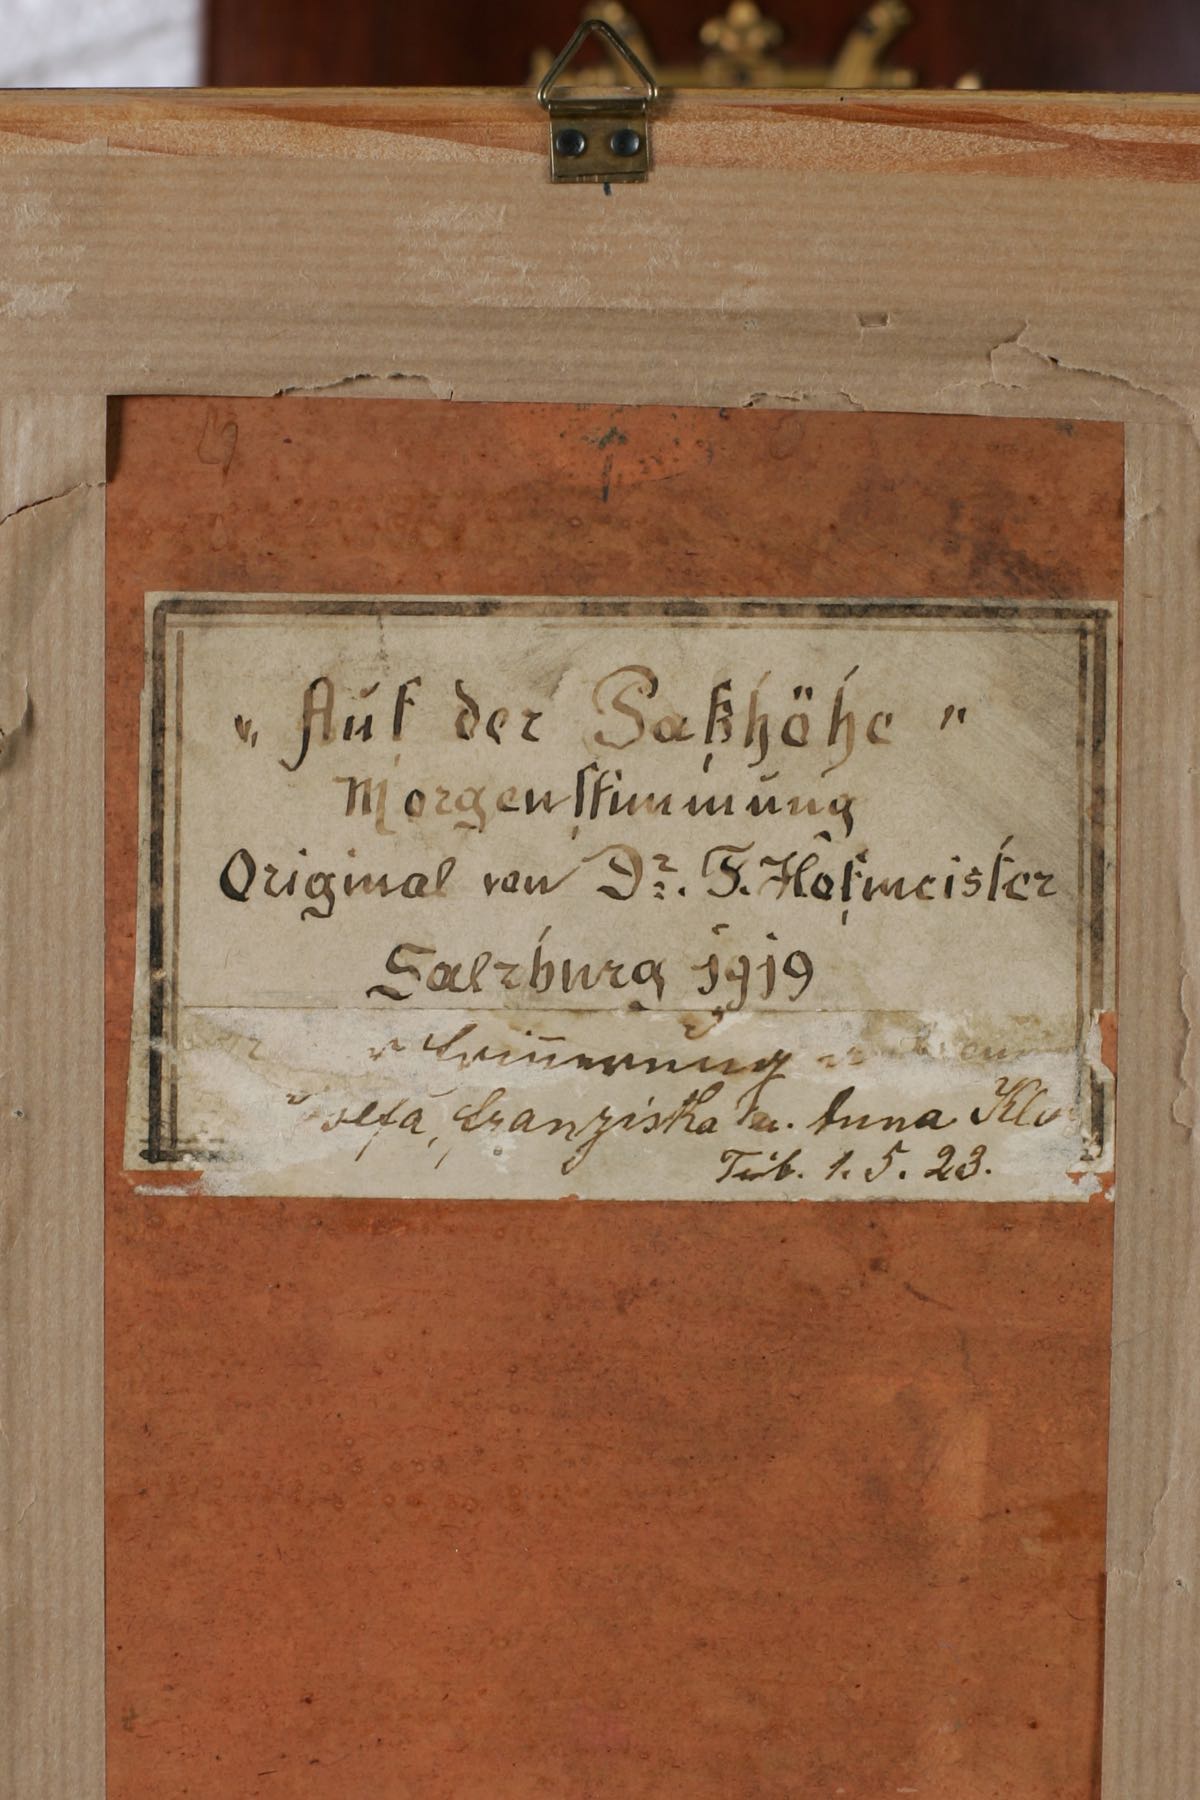 „Auf der Paßhöhe"
Morgenstimmung
Original von Dr. F. Hofmeister
Salzburg 1919
Erinnerung
Franziska u. Anna
Tüb. 1. 5. 23.